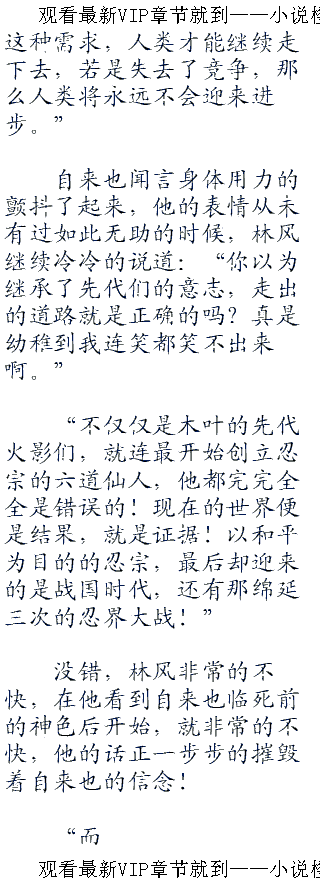 观看最新VIP章节就到——小说
这种需求，人类才能继续走
下去，若是失去了竞争，那
么人类将永远不会迎来进
步。”
自来也闻言身体用力的
颤抖了起来，他的表情从未
有过如此无助的时候，林风
继续冷冷的说道：“你以为
继承了先代们的意志，走出
的道路就是正确的吗？真是
幼稚到我连笑都笑不出来
啊。”
“不仅仅是木叶的先代
火影们，就连最开始创立忍
宗的六道仙人，他都完完全
全是错误的！现在的世界便
是结果，就是证据！以和平
为目的的忍宗，最后却迎来
的是战国时代，还有那绵延
三次的忍界大战！”
没错，林风非常的不
快，在他看到自来也临死前
的神色后开始，就非常的不
快，他的话正一步步的摧毁
着自来也的信念！
“而
观看最新VIP章节就到——小说